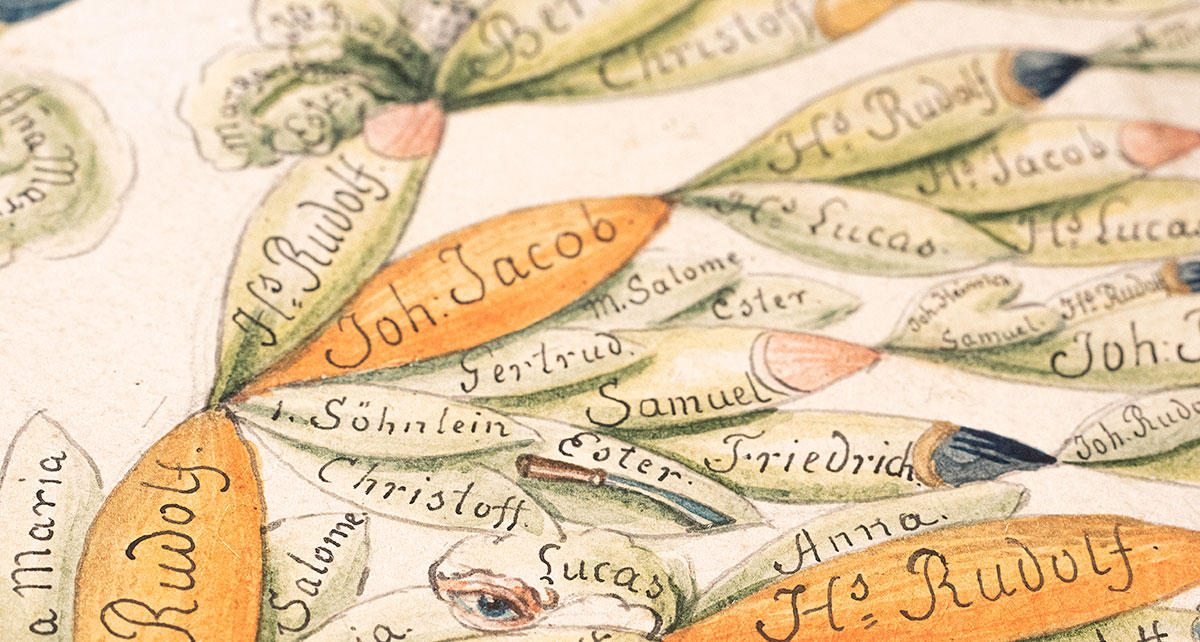 Christoff
Ester
Ana
Mar
Hs Rudolf
Hs Jacob
Hs Lucas.
Hs Lucas
Hs= Rudolf.
Joh: Jacob.
M. Salome.
Ester.
Joh. Heinrich
Samuel.
Hs. Rudolf
Joh:
Gertrud.
Samuel
1. Söhnlein
Ester.
Friedrich.
Joh. Rud
Christoff.
a Maria
Rudolf.
Salome.
Anna.
Lucas
Hs= Rudolf.
ia.